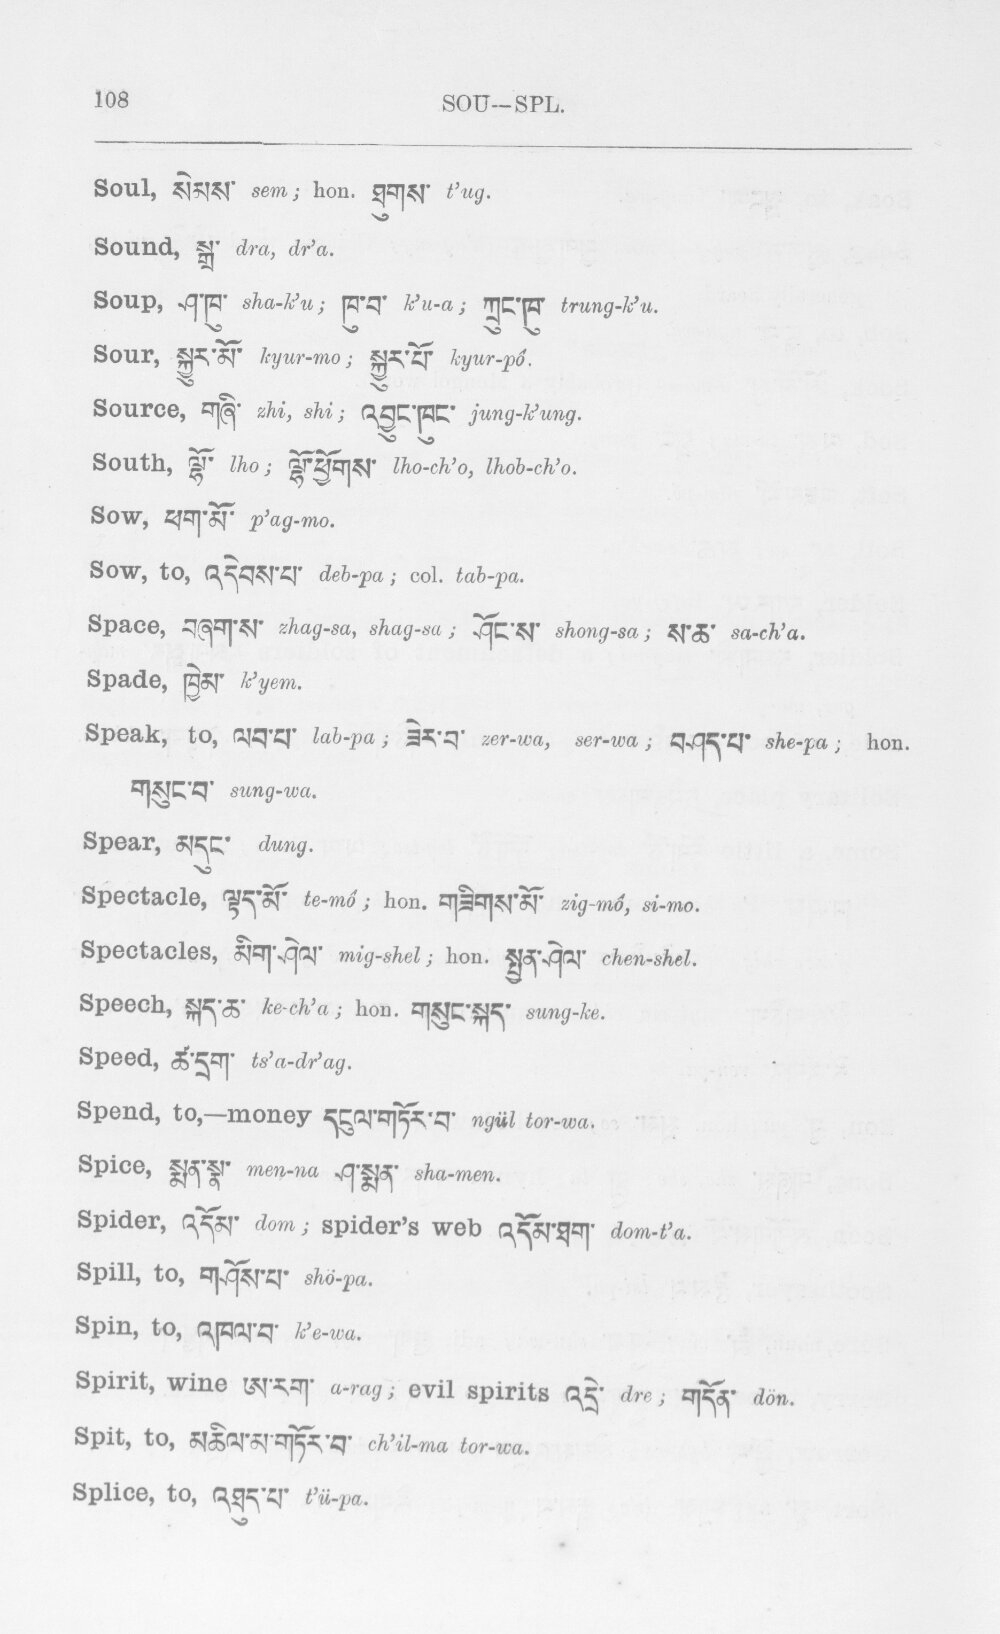 108
SOU--SPL.
Soul, སེམས་ sem ; hon. ཐུགས་ t’ug.
Sound, སྒྲ་ dra, dr’a.
Soup, ཤ་ཁུ་ sha-k’u ; ཁུ་བ་ k’u-a ; ཀྲུང་ཁུ་ trung-k’u.
Sour, སྐྱུར་མོ་ kyur-mo ; སྐྱུར་པོ་ kyur-pó.
Source, གཞི་ zhi, shi ; འབྱུང་ཁུང་ jung-k’ung.
South, ལྷོ་ lho ; ལྷོ་ཕྱོགས་ lho-ch’o, lhob-ch’o.
Sow, ཕག་མོ་ p’ag-mo.
Sow, to, འདེབས་པ་ deb-pa ; col. tab-pa.
Space, བཞག་ས་ zhag-sa, shag-sa ; ཤོང་ས་ shong-sa ; ས་ཆ་ sa-ch’a.
Spade, ཁྱེམ་ k’yem.
Speak, to, ལབ་པ་ lab-pa ; ཟེར་བ་ zer-wa, ser-wa ; བཤད་པ་ she-pa ; hon.
གསུང་བ་ sung-wa.
Spear, མདུང་ dung.
Spectacle, ལྟད་མོ་ te-mó ; hon. གཟིགས་མོ་ zig-mó, si-mo.
Spectacles, མིག་ཤེལ་ mig-shel ; hon. སྤྱན་ཤེལ་ chen-shel.
Speech, སྐད་ཆ་ ke-ch’a ; hon. གསུང་སྐད་ sung-ke.
Speed, ཚ་དྲག་ ts’a-dr’ag.
Spend, to,—money དངུལ་གཏོར་བ་ ngül tor-wa.
Spice, སྨན་སྣ་ men-na ཤ་སྨན་ sha-men.
Spider, འདོམ་ dom ; spider’s web འདོམ་ཐག་ dom-t’a.
Spill, to, གཤོས་པ་ shö-pa.
Spin, to, འཁལ་བ་ k’e-wa.
Spirit, wine ཨ་རག་ a-rag ; evil spirits འདྲེ་ dre ; གདོན་ dön.
Spit, to, མཆིལ་མ་གཏོར་བ་ ch’il-ma tor-wa.
Splice, to, འཐུད་པ་ t’ü-pa.